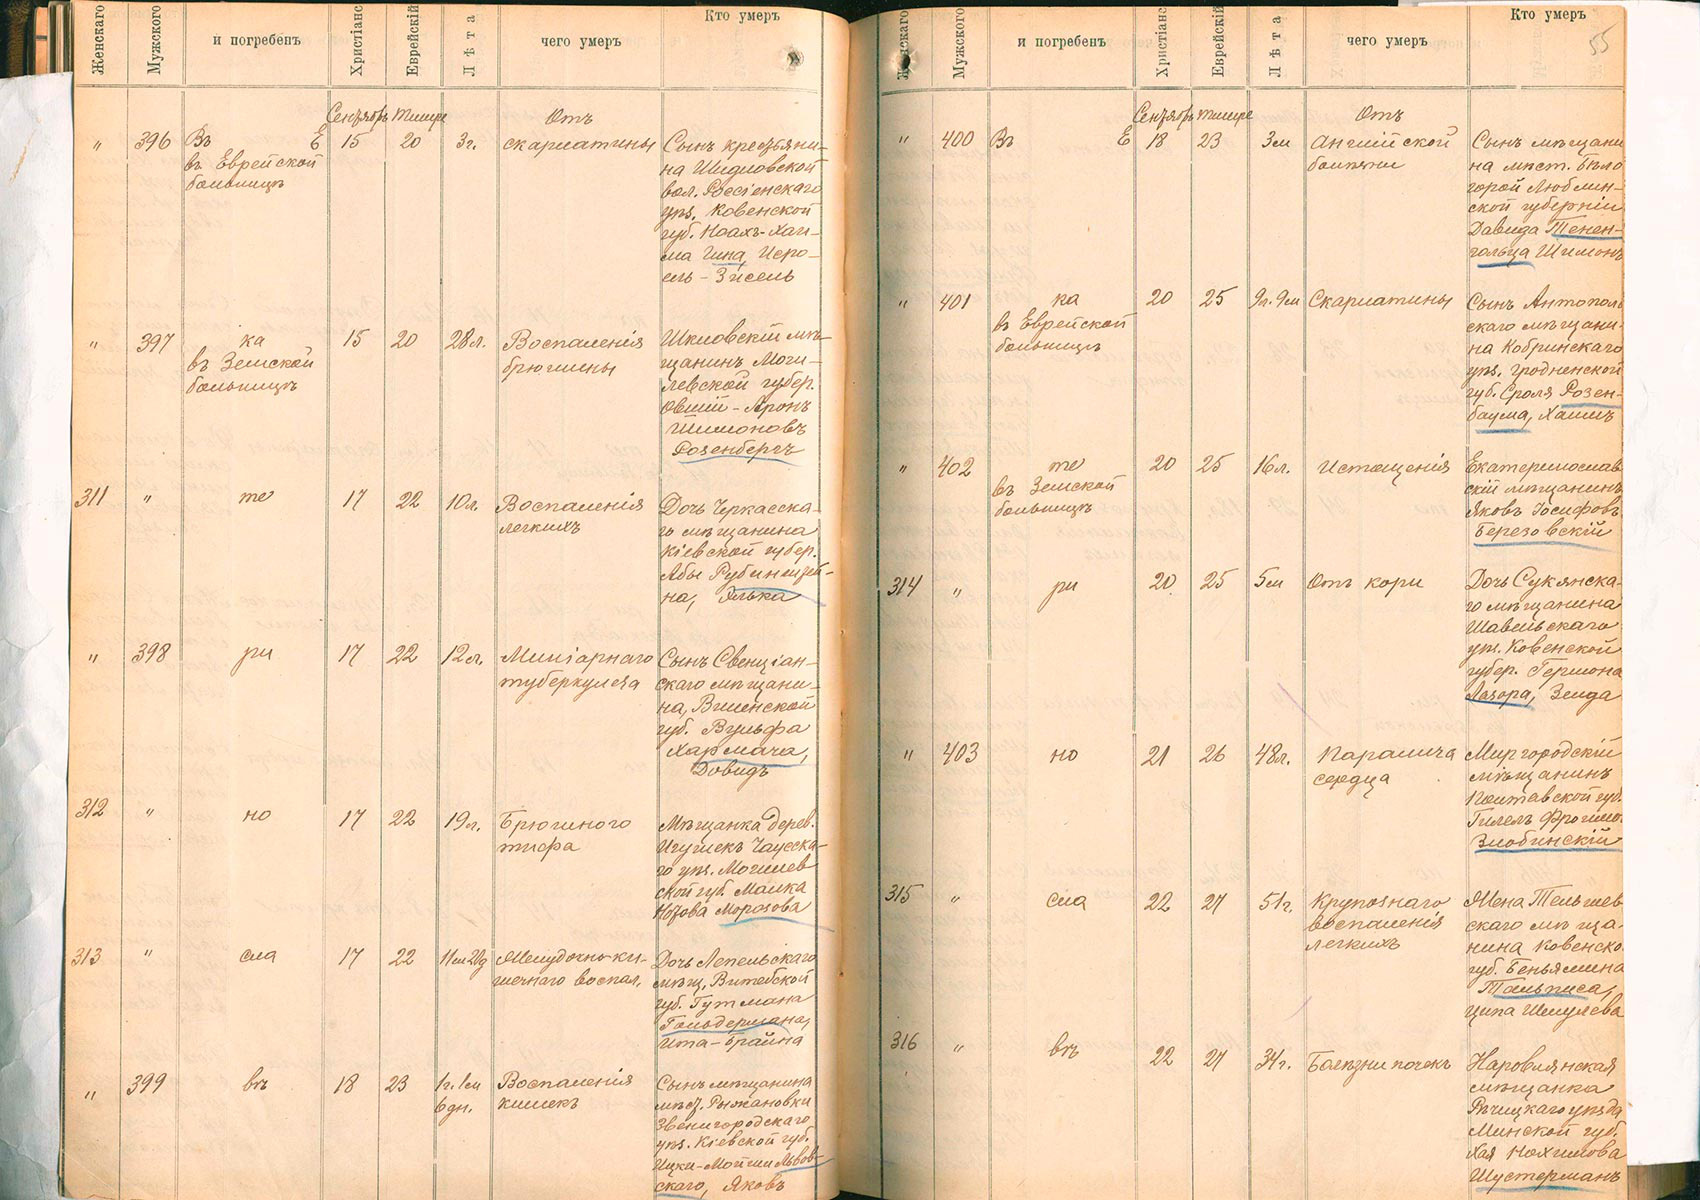 Женскаго
Мужского
и погребенъ
Христіанс
Еврейскій
Лѣта
чего умеръ
Кто умеръ
Сентябрь Тишре
Отъ
" 396 Въ Е 15 20 3г. скарлатины
въ Еврейской
больницѣ
Сынъ крестьяни-
на Шидловской
вол. Россіенскаго
уѣз. Ковенской
губ. Ноахъ-Хаи-
ма Гина, Исро-
ель-Зисель
" 397 ка 15 20 28л. Воспаленія
въ Земской брюшины
больницѣ
Шкловскій мѣ-
щанинъ Моги-
левской губер.
Овшій-Аронъ
Шимоновъ
Розенбергъ
311 " те 17 22 10л. Воспаленія
легкихъ
Дочь Черкасска-
го мѣщанина
Кіевской губер.
Абы Рубинштей-
на,
" 398 ри 17 22 12л. Миліарнаго
туберкулеза
Сынъ Свенціан-
скаго мѣщани-
на, Виленской
губ. Вульфа
Хармаца,
Довидъ
312 " но 17 22 19л. Брюшного
тифа
Мѣщанка дерев.
Чаусска-
го уѣз. Могилев
ской губ. Малка
Морозова
313 " сла 17 22 11м 21д Желудочно-ки-
шечнаго воспал.
Дочь Лепельскаго
мѣщ. Витебской
губ. Гутмана
Гольдермана,
Ита-Брайна
" 399 въ 18 23 1г. 1м Воспаленія
6дн. кишекъ
Сынъ мѣщанина
мѣст. Рыжановки
Звенигородскаго
уѣз. Кіевской губ.
Ицки-Мойши Львов-
скаго, Яковъ
Женскаго
Мужского
и погребенъ
Христіанс
Еврейскій
Лѣта
чего умеръ
Кто умеръ
55
Сентябрь Тишре
Отъ
" 400 Въ Е 18 23 3м Англійской
болѣзни
Сынъ мѣщани
на мѣст. Бѣло
горой Люблин-
ской губерніи
Давида Тенен-
гольца Шимонъ
" 401 ка 20 25 9л. 9м Скарлатины
въ Еврейской
больницѣ
Сынъ Антополь
скаго мѣщани-
на Кобринскаго
уѣз. Гродненской
губ. Сроля Розен-
баума, Хаимъ
" 402 те 20 25 16л. Истощенія
въ Земской
больницѣ
Екатеринослав
скій мѣщанинъ
Яковъ Іосифовъ
Березовскій
314 " ри 20 25 5м Отъ кори
Дочь Сукянска-
го мѣщанина
Шавельскаго
уѣз. Ковенской
губер. Гермона
Лазора, Зелда
" 403 но 21 26 48л. Паралича
сердца
Миргородскій
мѣщанинъ
Полтавской губ.
Гилель
Злобинскій
315 " сла 22 27 51г. Крупознаго
воспаленія
легкихъ
Жена Тельшев
скаго мѣща-
нина Ковенско
губ. Беньямина
Тальписа,
Ципа Шмулева
316 " въ 22 27 34г. Болѣзни почекъ
Наровлянская
мѣщанка
Рѣчицкаго уѣзда
Минской губ.
Хая Нохимова
Шустерманъ